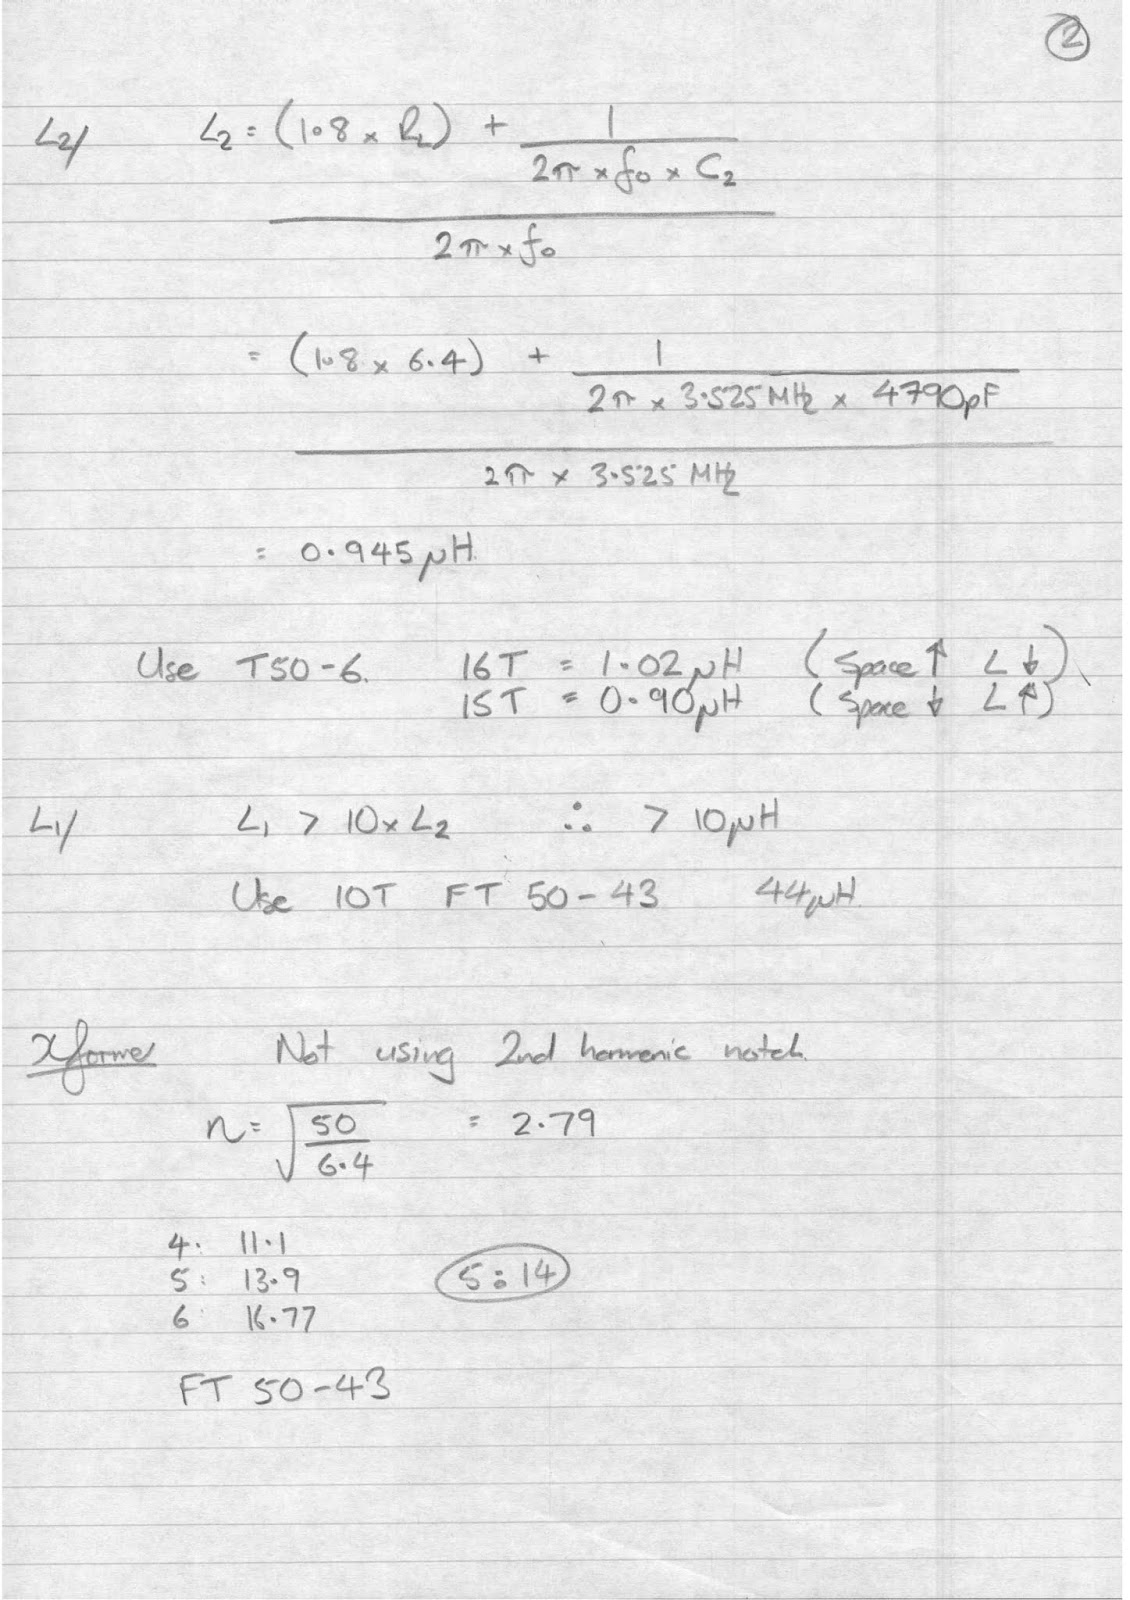 2
L2/ L2 = (1.8 × RL) + 1
2π × f0 × C2
2π × f0
= (1.8 × 6.4) + 1
2π × 3.525 MHz × 4790pF
2π × 3.525 MHz
= 0.945μH
Use T50-6. 16T = 1.02μH (Space ↑ L ↓)
15T = 0.90μH (Space ↓ L ↑)
L1/ L1 > 10×L2 ∴ > 10μH
Use 10T FT 50-43 44μH.
Xformer Not using 2nd harmonic notch.
n = √50 = 2.79
6.4
4: 11.1
5: 13.9 5:14
6 16.77
FT 50-43